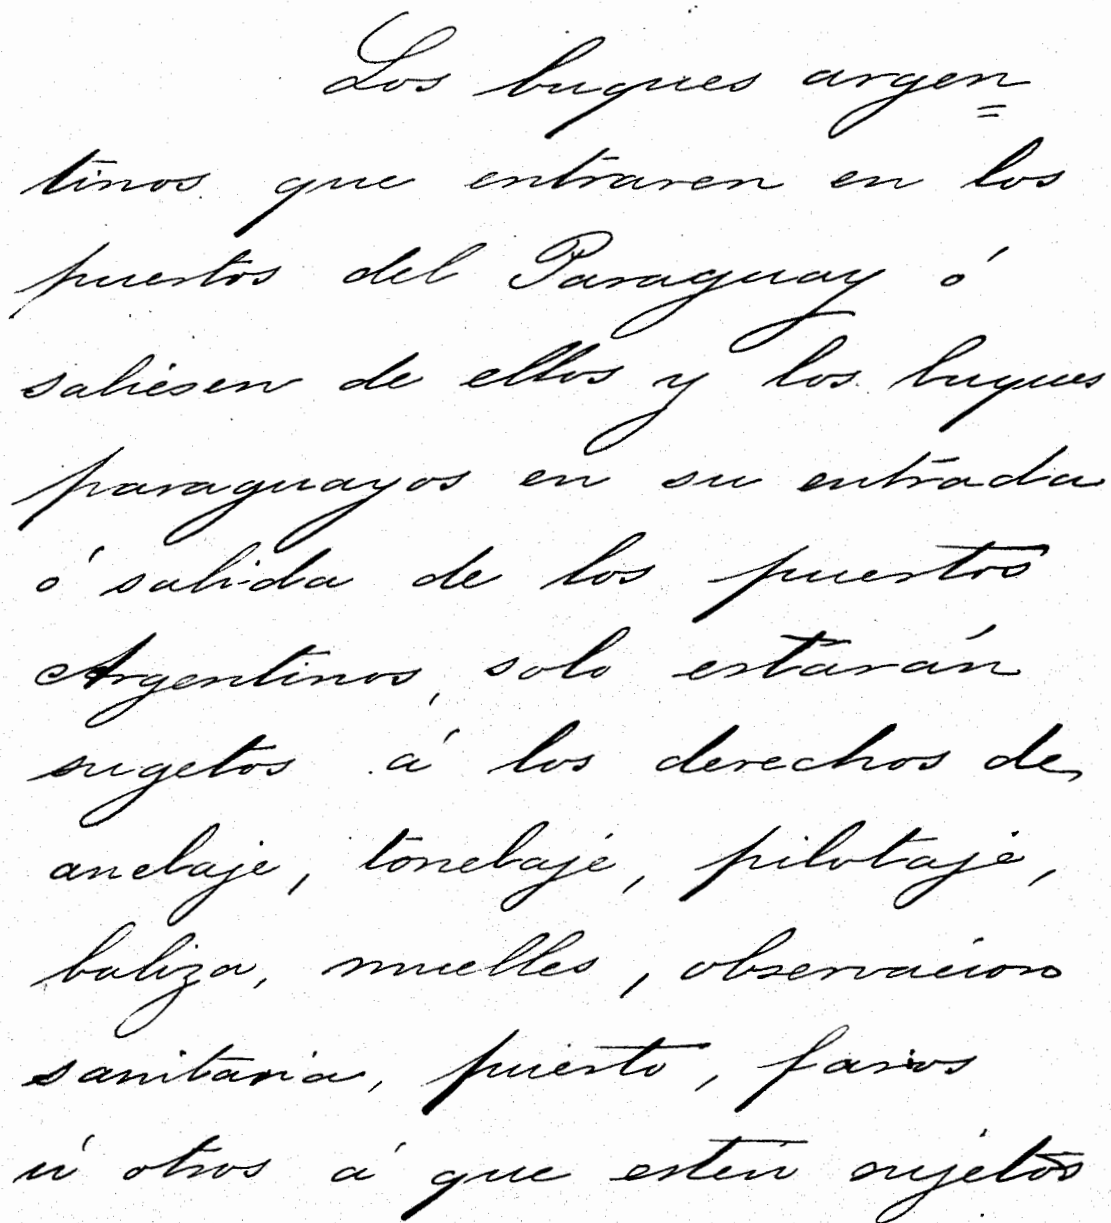 Los buques argen=
tinos que entraren en los
puertos del Paraguay ó
saliesen de ellos y los buques
paraguayos en su entrada
ó salida de los puertos
Argentinos, solo estarán
sugetos á los derechos de
anclaje, tonelaje, pilotaje,
baliza, muelles, observacion
sanitaria, puerto, faros
ú otros á que esten sujetos